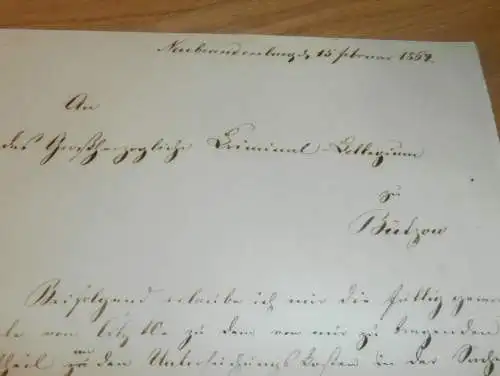 Neubrandenburg d. 15 Februar 1852.
An
das Großherzogliche Criminal-Collegium
zu
Bützow
Beifolgend erlaube ich mir die fällig gewe
von zu dem von mir zu tragenden
theil von den Untersuchungskosten in der Sache